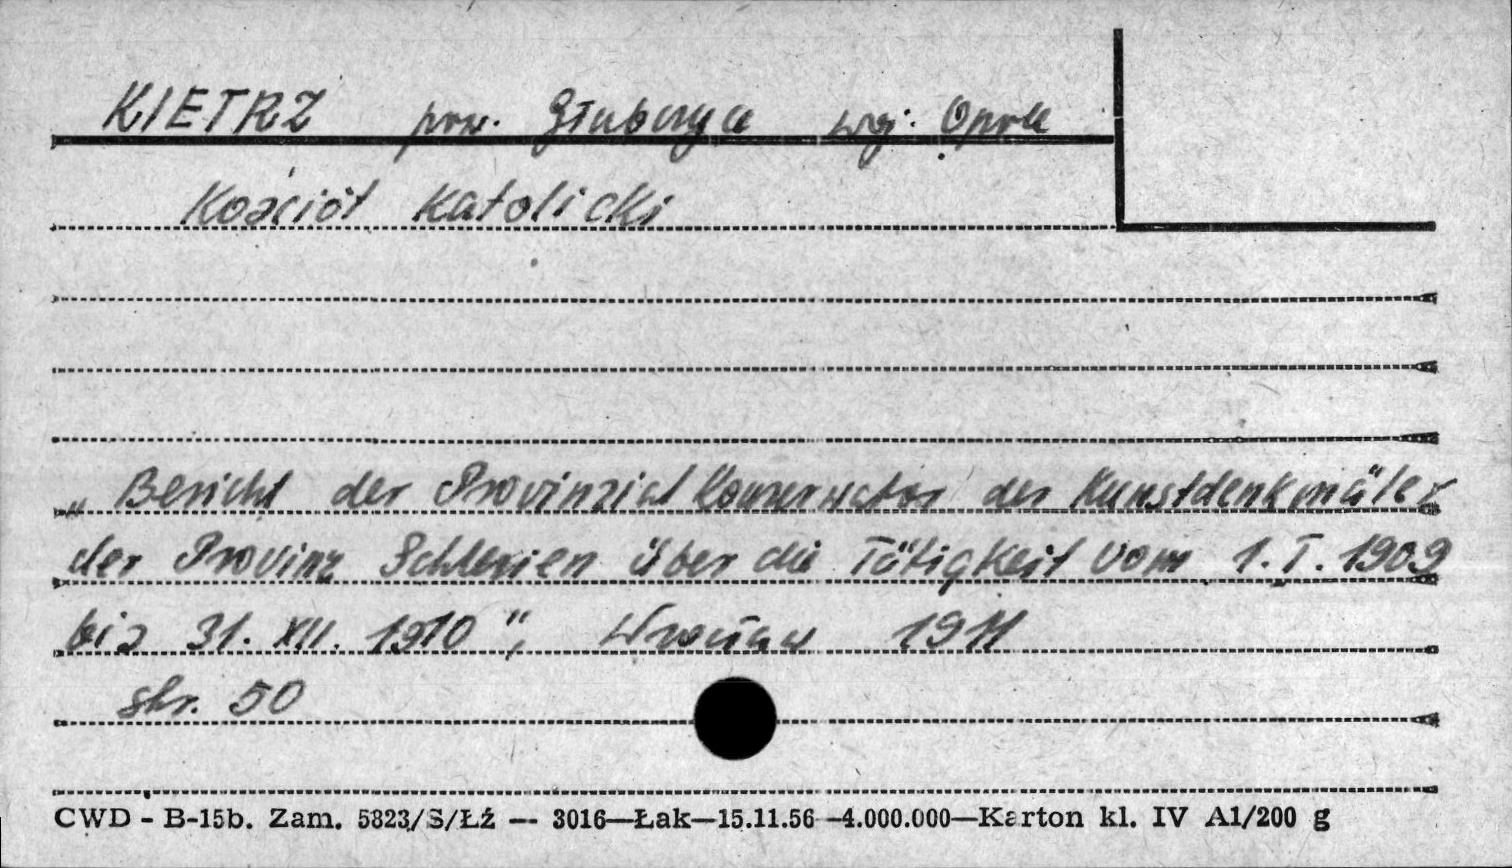 KIETRZ pow. Głubczyce woj. Opole
Kościół Katolicki
„Bericht der Provinzial Konservator der Kunstdenkmäler
der Provinz Schlesien über die Tätigkeit vom 1.I.1909
bis 31.XII.1910", Wrocław 1911
str. 50
CWD - B-15b. Zam. 5823/S/Łź — 3016—Łak—15.11.56—4.000.000—Karton kl. IV A1/200 g